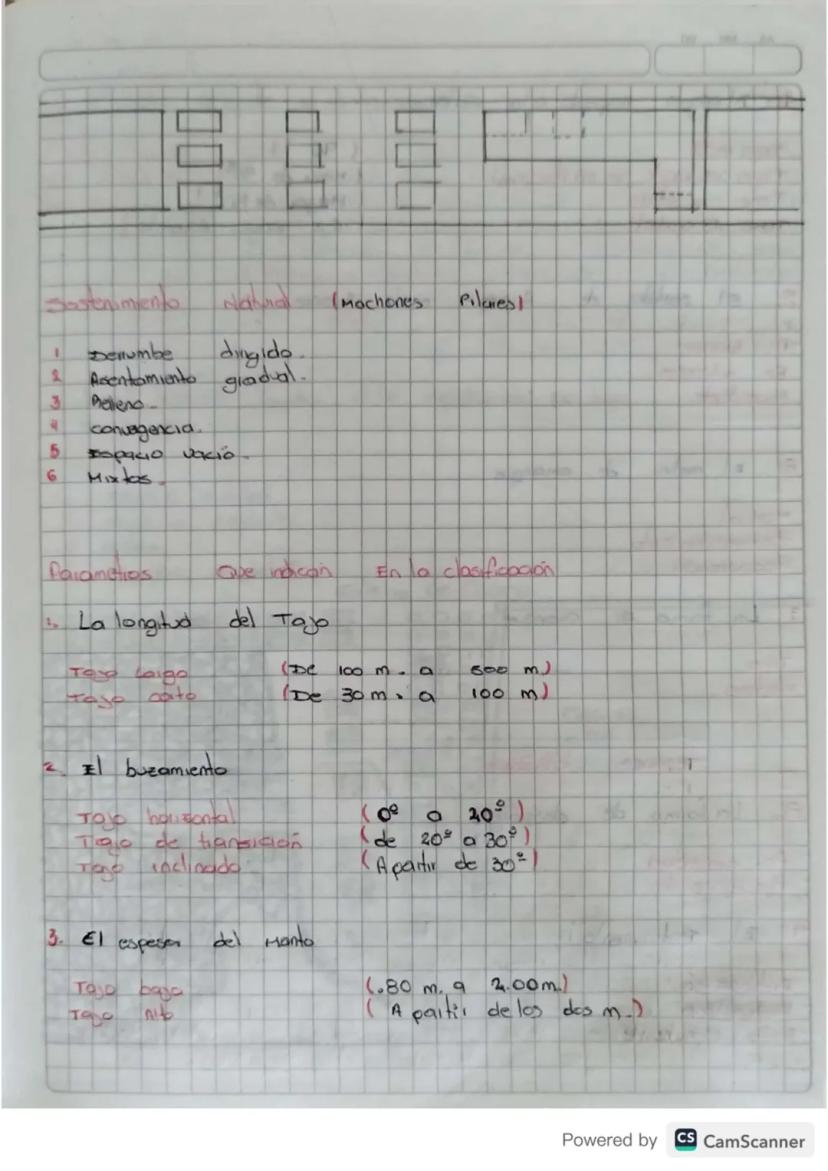 Sostenimiento Natural (Machones Pilares)
1 Derrumbe dirigido.
2 Asentamiento gradual.
3 Relleno.
4 convergencia.
5 Espacio vacio.
6 Mixtos.
Parametros Que indican En la clasificación
1. La longitud del Tajo
Tajo Largo (De 100 m. a 600 m)
Tajo corto (De 30 m. a 100 m)
2. El buzamiento
Tajo horizontal (0º a 20º)
Tajo de transición (de 20º a 30º)
Tajo inclinado (A partir de 30º)
3. El espesor del Manto
Tajo bajo (.80 m. a 2.00 m.)
Tajo Alto (A partir de los dos m.)
Powered by CS CamScanner